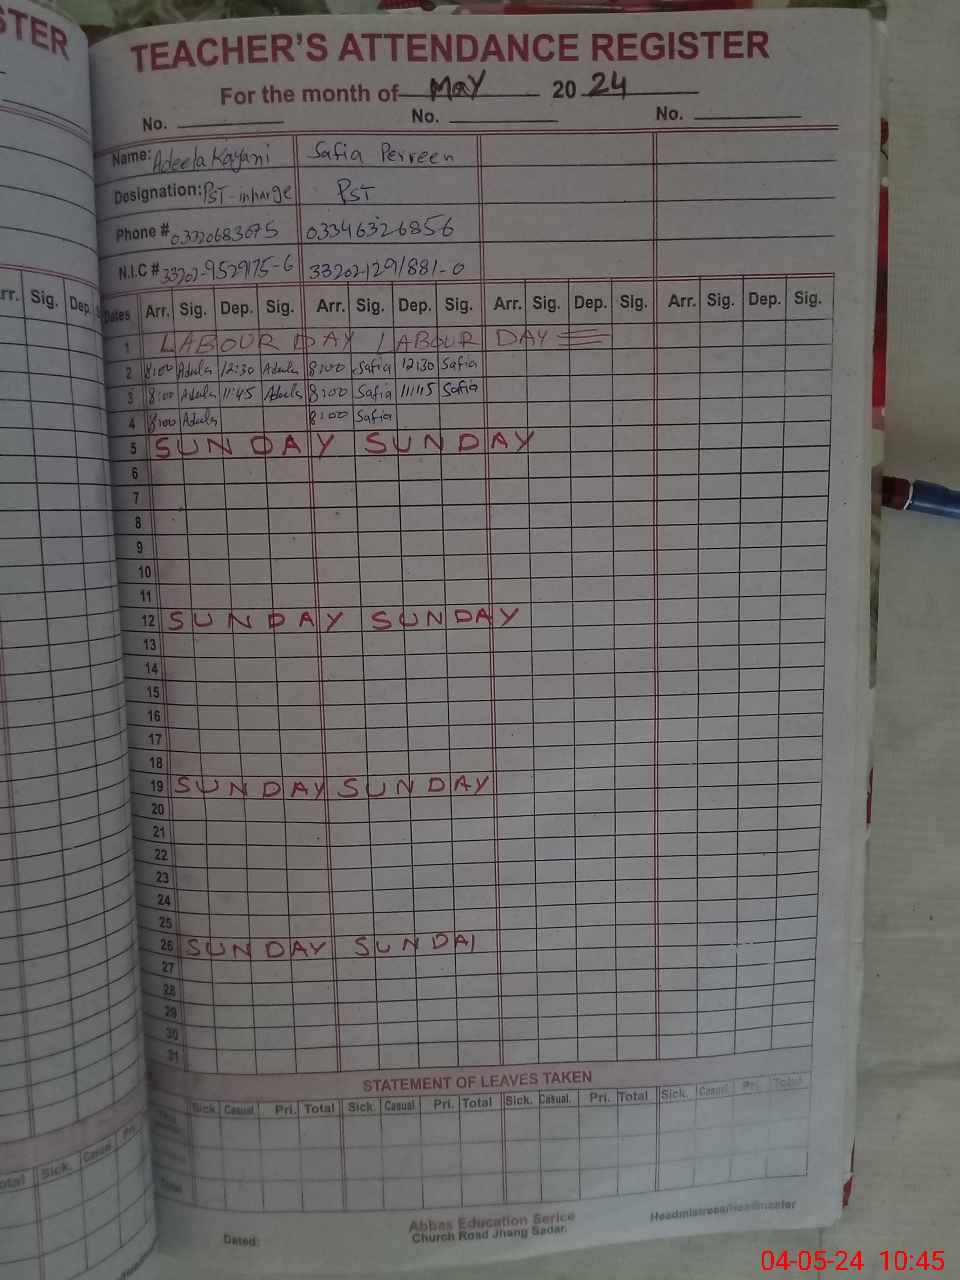 STER
TEACHER'S ATTENDANCE REGISTER
For the month of May 2024
No. No. No.
Name: Adeela Kayani Safia Perveen
Designation: PST-inharge PST
Phone # 03320683675 03346326856
N.I.C # 33202-9529175-6 33202-1291881-0
rr. Sig. Dep.
Dates Arr. Sig. Dep. Sig. Arr. Sig. Dep. Sig. Arr. Sig. Dep. Sig. Arr. Sig. Dep. Sig.
1 LABOUR DAY LABOUR DAY
2 8:00 Adeela 12:30 Adeela 8:00 Safia 12:30 Safia
3 8:00 Adeela 11:45 Adeela 8:00 Safia 11:45 Safia
4 8:00 Adeela 8:00 Safia
5 SUNDAY SUNDAY
6
7
8
9
10
11
12 SUNDAY SUNDAY
13
14
15
16
17
18
19 SUNDAY SUNDAY
20
21
22
23
24
25
26 SUNDAY SUNDAY
27
28
29
30
31
STATEMENT OF LEAVES TAKEN
Sick. Casual Pri. Total Sick. Casual Pri. Total Sick. Casual. Pri. Total Sick. Casual Pri. Total
otal Sick. Casual Pri.
Total
Dated: Abbas Education Serice Headmistress/Headmaster
Church Road Jhang Sadar.
04-05-24 10:45